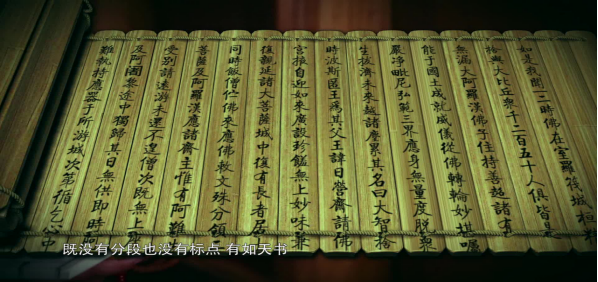 如是我聞一時佛在室羅筏城桓
捨與大比丘眾千二百五十人俱皆是
無漏大阿羅漢佛子住持善超諸有
能于國土成就威儀從佛轉輪妙堪囑
嚴淨毗尼弘範三界應身無量度脫眾
生拔濟未來越諸塵累其名曰大智捨
時波斯匿王為其父王諱日營齋請佛
宮掖自迎如來廣設珍饈無上妙味兼
復親延諸大菩薩城中復有長者居
同時飯僧佇佛來應佛敕文殊分領
菩薩及阿羅漢應諸齋主惟有阿難
受別請遠游未還不遑僧次既無上
及阿闍黎途中獨歸其日無供即時
難執持應器于所游城次第循乞心中
既没有分段也没有标点 有如天书